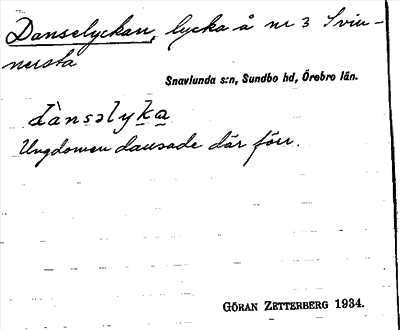 Danselyckan, lycka å nr 3 Svin-
nersta
Snavlunda s:n, Sundbo hd, Örebro län.
dànsəlyka
Ungdomen dansade där förr.
GÖRAN ZETTERBERG 1934.